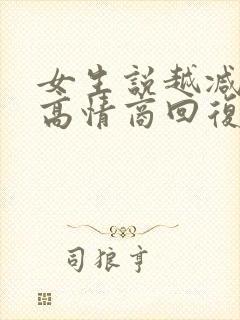 女生説越减
高情商回復
司狼亨